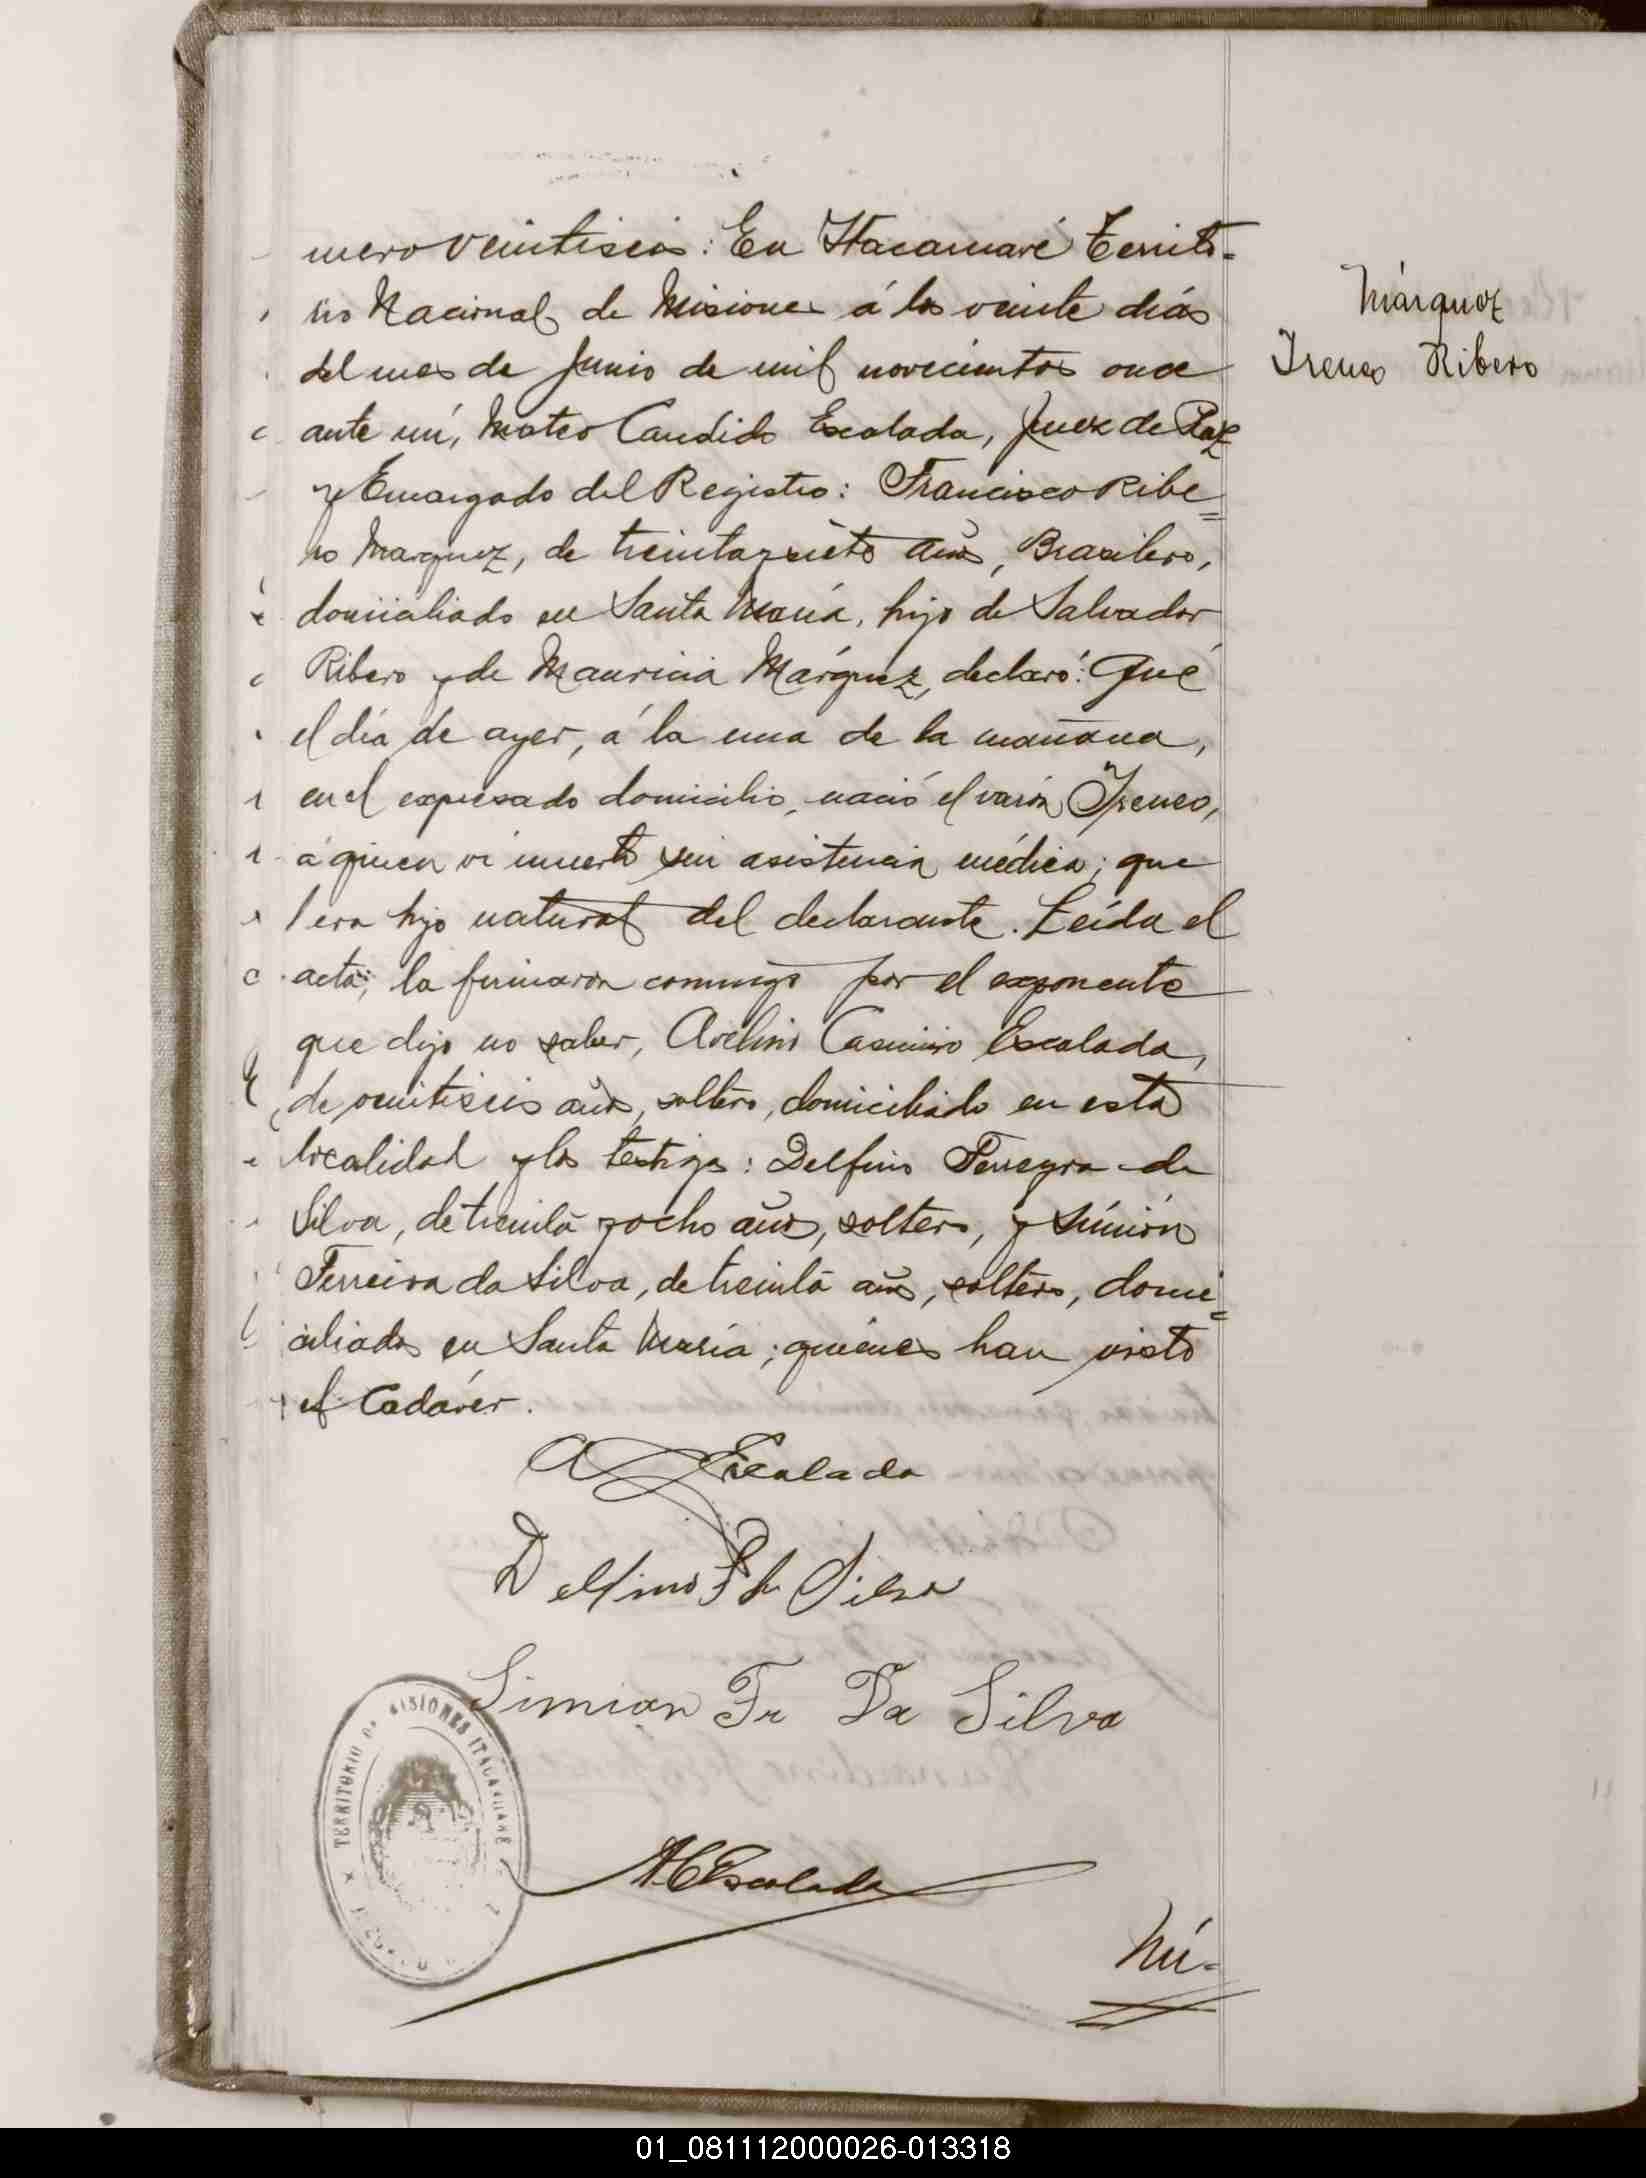 mero veintiseis: En Itacaruaré Territo-
rio Nacional de Misiones á los veinte días
del mes de Junio de mil novecientos once
ante mí, Mateo Candido Escalada, Juez de Paz
y Encargado del Registro: Francisco Ribe=
ro Marquez, de treinta y siete años, Brasilero,
domiciliado en Santa María, hijo de Salvador
Ribero y de Mauricia Márquez, declaró: Qué
el día de ayer, á la una de la mañana,
en el expresado domicilio, nació el varón Ireneo,
á quien vi muerto sin asistencia médica; que
era hijo natural del declarante. Leída el
acta, la firmaron conmigo por el exponente
que dijo no saber, Avelino Casimiro Escalada,
de veintiseis años, soltero, domiciliado en esta
localidad y los testigos: Delfino Ferreyra da
Silva, de treinta y ocho años, soltero, y Simión
Ferreira da Silva, de treinta años, soltero, domi=
ciliados en Santa María; quiénes han visto
el Cadáver.
Márquez
Ireneo Ribero
A Escalada
Delfino F da Silva
Simion Fr Da Silva
TERRITORIO DE MISIONES ITACARUARE
M C Escalada
Nú-
01_081112000026-013318